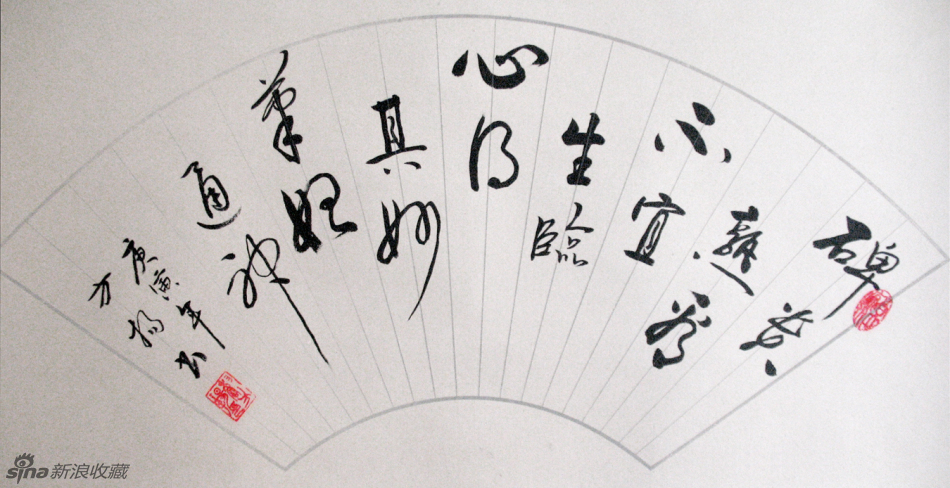 碑貴
熟看
不宜
生臨
心得
其妙
筆始
通神
庚寅年
方揚书
sina新浪收藏